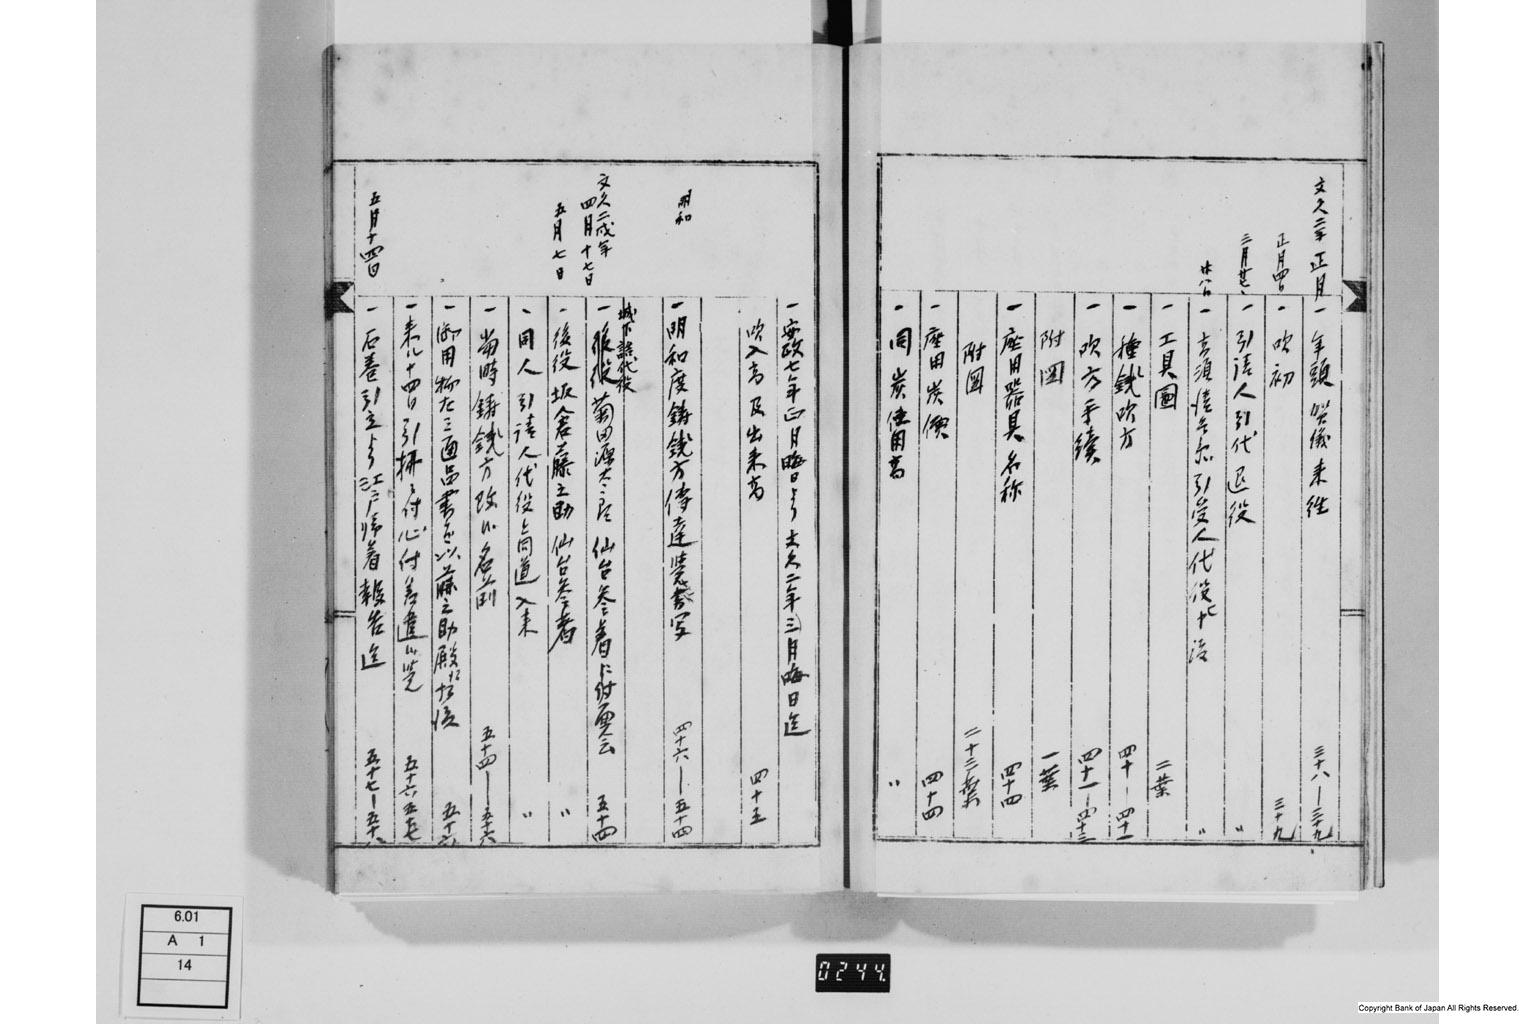 文久二年正月 一 年頭賀儀来往 三十八—三十九
正月四日 一 吹初 三十九
三月廿七、 一 引請人引代退役 〃
廿八日 一 引受人代役 〃
一 工具圖 二葉
一 種鐵吹方 四十—四十一
一 吹方手續 四十一—四十三
附図 一葉
一 座用器具名称 四十四
附図 二十三葉
一 座用炭價 四十四
一 同炭使用高 〃
一 安政七年正月晦日より文久二年三月晦日迄
吹入高及出来高 四十五
明和 一 明和度鋳銭方傳達覚書写 四十六—五十四
文久二戌年四月十七日 一 後役菊田源太郎仙台参着ニ付 五十四
五月七日 一 後役坂倉藤之助仙台参着 〃
一 同人引請人代役ト同道入来 〃
一 當時鋳銭方改メ名前 五十四—五十六
一 御用物 三通品書 藤之助殿
一 来ル十四日引拂ニ付心付差遣シ 五十六
五月十四日 一 石巻引立より江戸帰着報告迄 五十七—五十八
6.01
A 1
14
0244.
Copyright Bank of Japan All Rights Reserved.